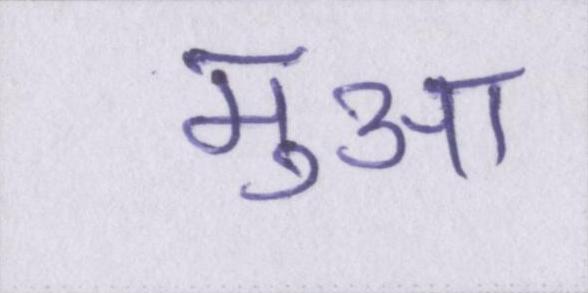 मुआ